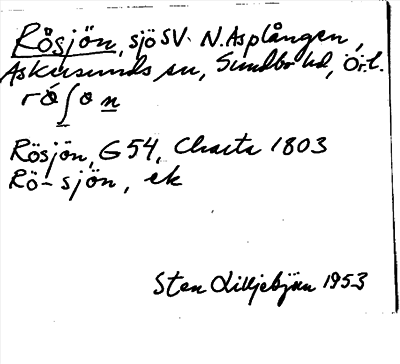 Rösjön, sjö SV. N. Asplången,
Askersunds sn, Sundbo hd, Ör.l.
Rösjön, G 54, Charta 1803
Rö-sjön, ek
Sten Liljebjörn 1953